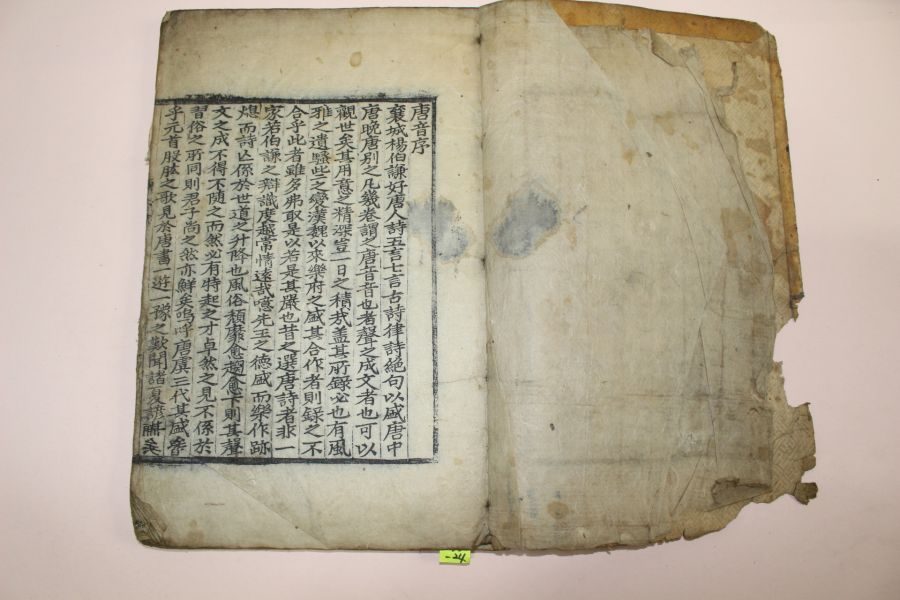 唐音序
襄城楊伯謙好唐人詩五言七言古詩律詩絕句以盛唐中
唐晚唐別之凡幾卷謂之唐音音也者聲之成文者也可以
觀世矣其用意之精深豈一日之積哉盖其所録必也有風
雅之遺騷些之變漢魏以來樂府之盛其合作者則録之不
合乎此者雖多弗取是以若是其嚴也昔之選唐詩者非一
家若伯謙之辯識度越常情遠哉噫先王之德盛而樂作跡
熄而詩亡係於世道之升降也風俗頹靡愈趨愈下則其聲
文之成不得不隨之而然必有特起之才卓然之見不係於
習俗之所同則君子尚之然亦鮮矣嗚呼唐虞三代其盛矣
乎元首股肱之歌見於唐書一遊一豫之歎聞諸夏諺
-24